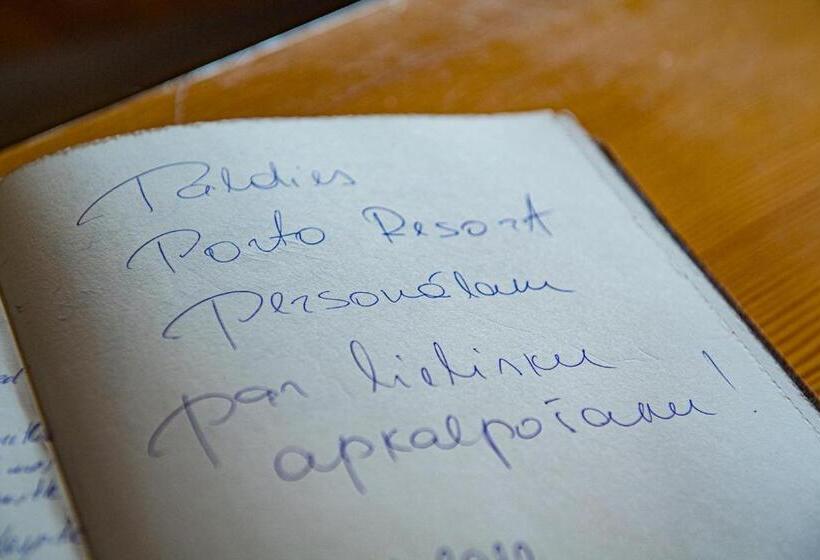 Paldies
Porto Resort
Personālam
par lielisku
apkalpošanu!